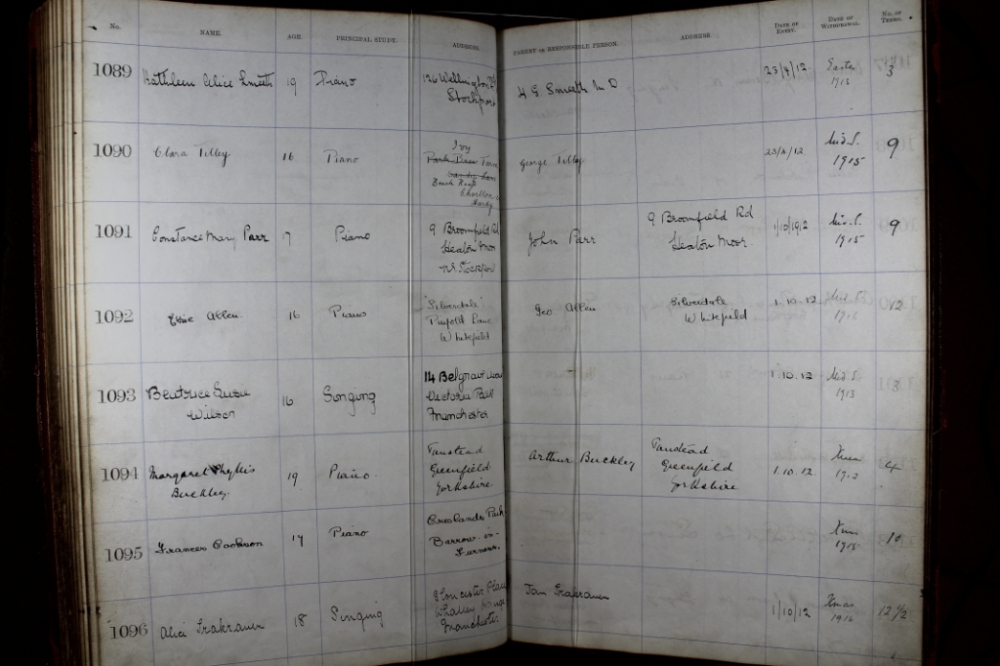 No. NAME. AGE. PRINCIPAL STUDY. ADDRESS. PARENT OR RESPONSIBLE PERSON. ADDRESS. DATE OF ENTRY. DATE OF WITHDRAWAL. No. OF TERMS.
1089 Kathleen Alice Smeeth 19 Piano 126 Wellington Rd H G. Smeeth M D 23/4/12 Easter 3
Stockport 1913
1090 Clara Tilley 16 Piano Ivy George Tilley 23/4/12 Mid. S. 9
1915
Bank
Chorlton
1091 Constance Mary Parr 17 Piano 9 Broomfield Rd John Parr 9 Broomfield Rd 1/10/1912 Mid. S. 9
Heaton Moor Heaton Moor. 1915
Nr. Stockport
1092 Elsie Allen. 16 Piano "Silverdale" Geo Allen Silverdale 1.10.12 Mid S. 12
Pinfold Lane Whitefield
Whitefield
1093 Beatrice 16 Singing 14 Belgrave 1.10.12 Mid. S. 3
Wilson Victoria Park 1913
Manchester
1094 Margaret Phyllis 19 Piano. Tunstead Arthur Buckley Tunstead 1.10.12 Xmas 4
Buckley. Greenfield Greenfield 1913
Yorkshire. Yorkshire
1095 Frances Cookson 17 Piano Croslands Park Xmas 10
Barrow-in- 1915
Furness.
1096 Alice 18 Singing Gloucester Place Jan 1/10/12 Xmas 12 1/2
Whalley Range 1916
Manchester.